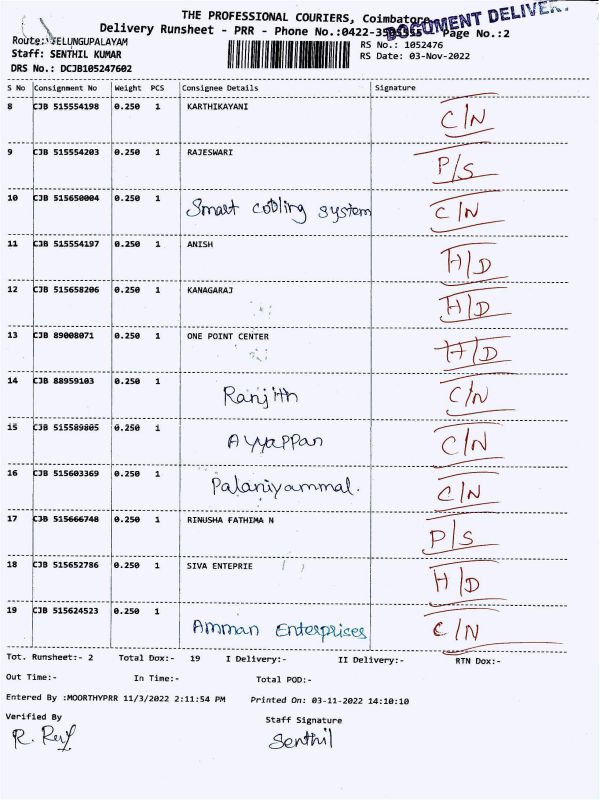 THE PROFESSIONAL COURIERS, Coimbatore
DOCUMENT DELIVERY
Delivery Runsheet - PRR - Phone No.:0422- Page No.:2
Route: TELUNGUPALAYAM RS No.: 1052476
Staff: SENTHIL KUMAR RS Date: 03-Nov-2022
DRS No.: DCJB105247602
S No Consignment No Weight PCS Consignee Details Signature
8 CJB 515554198 0.250 1 KARTHIKAYANI C/N
9 CJB 515554203 0.250 1 RAJESWARI P/S
10 CJB 515650004 0.250 1 Smart cooling system C/N
11 CJB 515554197 0.250 1 ANISH H/D
12 CJB 515658206 0.250 1 KANAGARAJ H/D
13 CJB 89008071 0.250 1 ONE POINT CENTER H/D
14 CJB 88959103 0.250 1 Ranjith C/N
15 CJB 515589805 0.250 1 Ayyappan C/N
16 CJB 515603369 0.250 1 Palaniyammal. C/N
17 CJB 515666748 0.250 1 RINUSHA FATHIMA N P/S
18 CJB 515652786 0.250 1 SIVA ENTEPRIE H/D
19 CJB 515624523 0.250 1 Amman Enterprises C/N
Tot. Runsheet:- 2 Total Dox:- 19 I Delivery:- II Delivery:- RTN Dox:-
Out Time:- In Time:- Total POD:-
Entered By :MOORTHYPRR 11/3/2022 2:11:54 PM Printed On: 03-11-2022 14:10:10
Verified By Staff Signature
Senthil